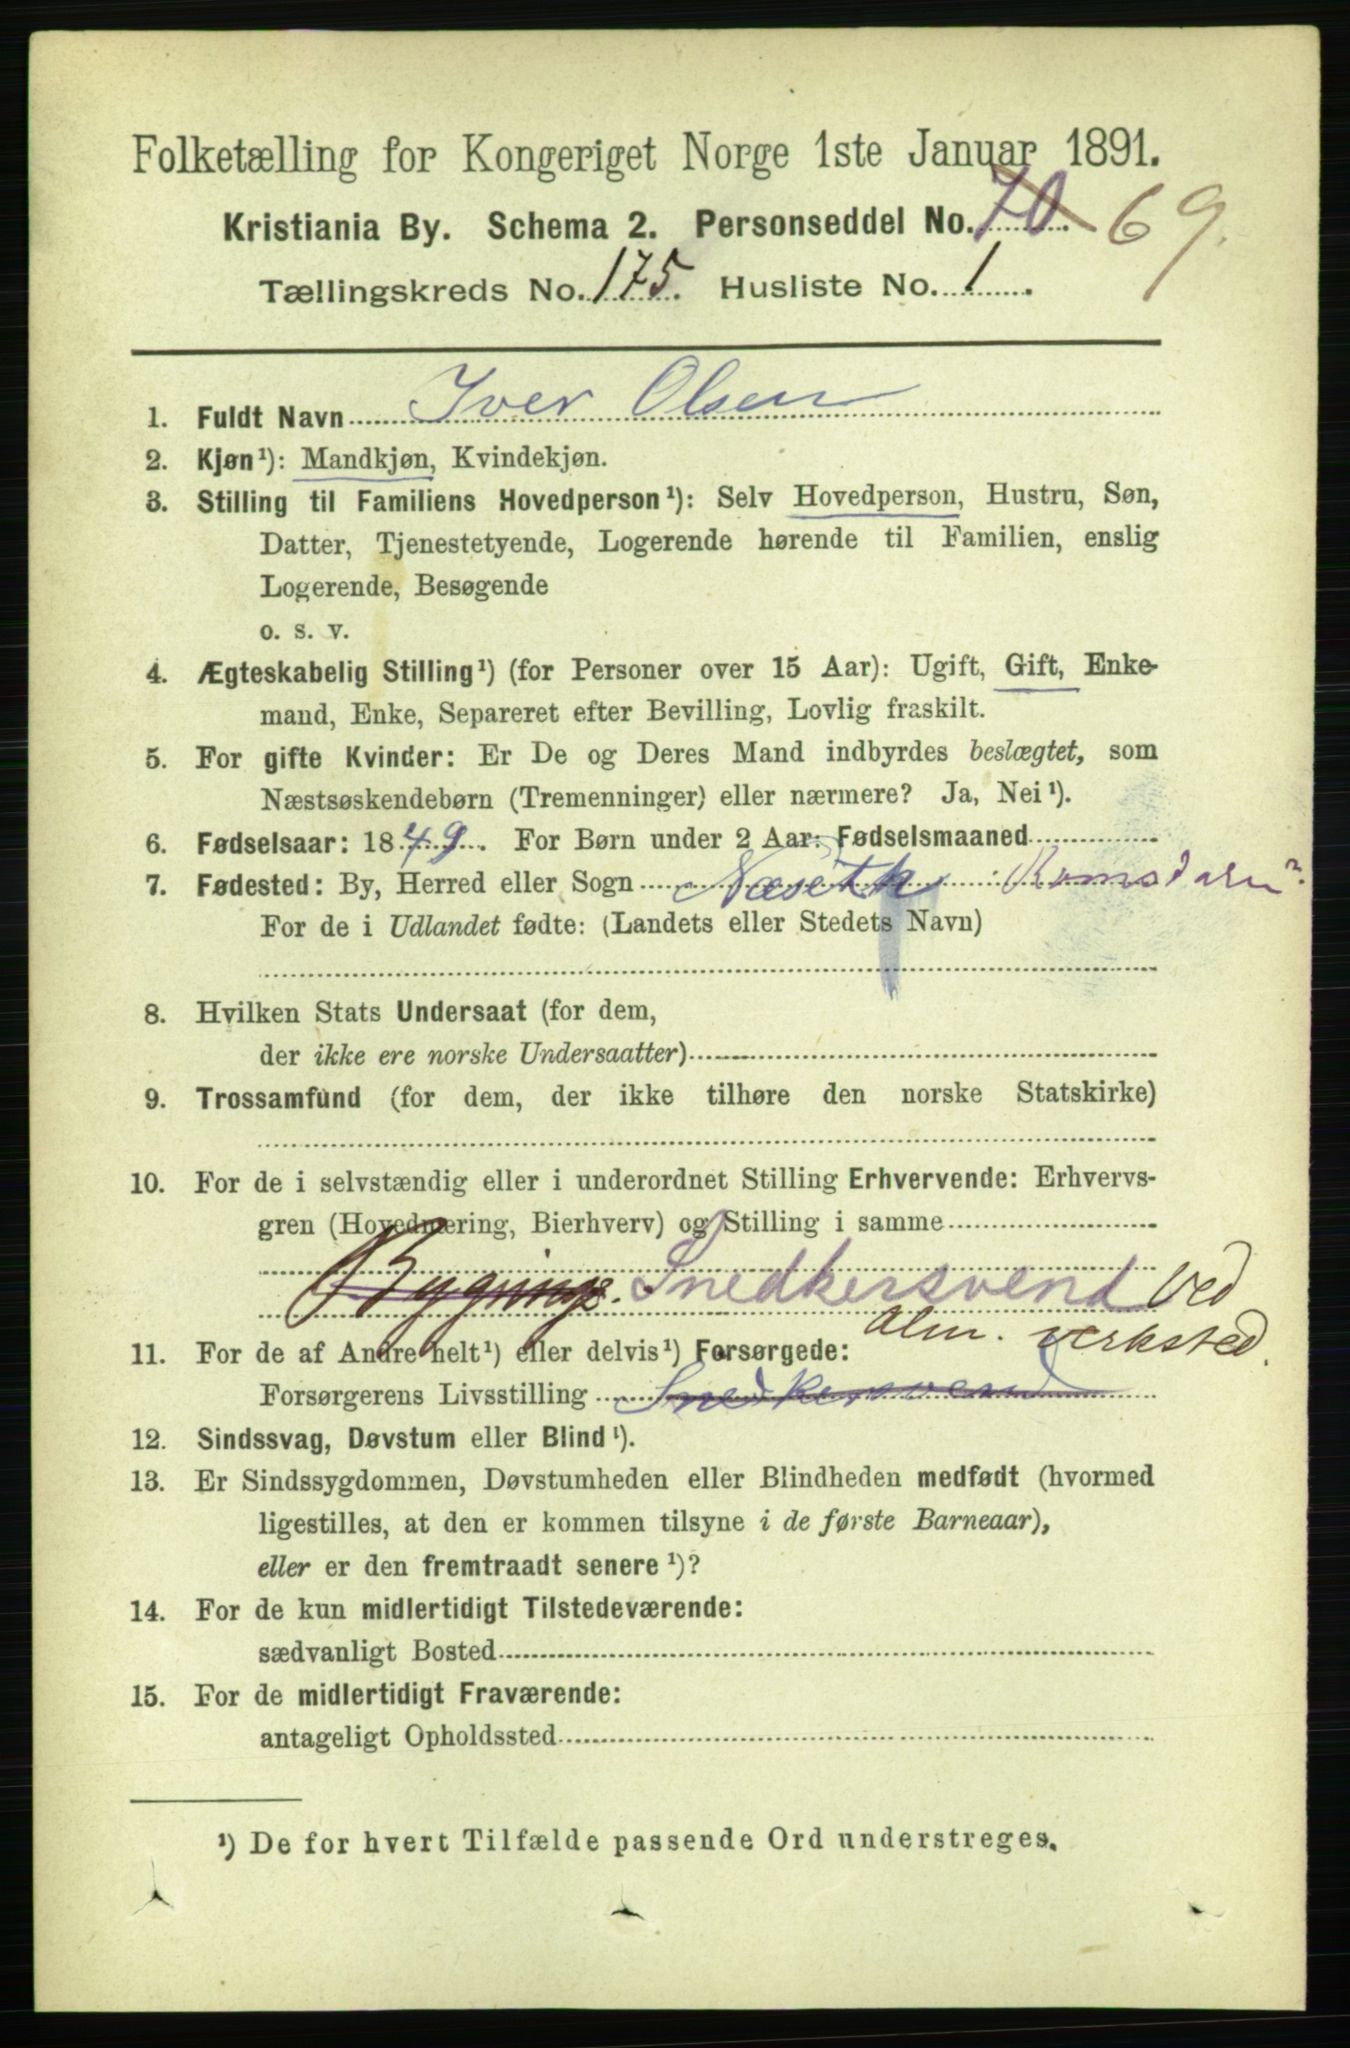 Folketælling for Kongeriget Norge 1ste Januar 1891.
Kristiania By. Schema 2. Personseddel No. 70. 69.
Tællingskreds No. 175. Husliste No. 1.
1. Fuldt Navn Iver Olsen
2. Kjøn¹): Mandkjøn, Kvindekjøn.
3. Stilling til Familiens Hovedperson¹): Selv Hovedperson, Hustru, Søn,
Datter, Tjenestetyende, Logerende hørende til Familien, enslig
Logerende, Besøgende
o. s. v.
4. Ægteskabelig Stilling¹) (for Personer over 15 Aar): Ugift, Gift, Enke-
mand, Enke, Separeret efter Bevilling, Lovlig fraskilt.
5. For gifte Kvinder: Er De og Deres Mand indbyrdes beslægtet, som
Næstsøskendebørn (Tremenninger) eller nærmere? Ja, Nei¹).
6. Fødselsaar: 1849. For Børn under 2 Aar: Fødselsmaaned
7. Fødested: By, Herred eller Sogn Næseth
For de i Udlandet fødte: (Landets eller Stedets Navn)
8. Hvilken Stats Undersaat (for dem,
der ikke ere norske Undersaatter)
9. Trossamfund (for dem, der ikke tilhøre den norske Statskirke)
10. For de i selvstændig eller i underordnet Stilling Erhvervende: Erhvervs-
gren (Hovednæring, Bierhverv) og Stilling i samme
Bygnings. Snedkersvend ved
alm. verksted.
11. For de af Andre helt¹) eller delvis¹) Forsørgede:
Forsørgerens Livsstilling Snedkersvend
12. Sindssvag, Døvstum eller Blind¹).
13. Er Sindssygdommen, Døvstumheden eller Blindheden medfødt (hvormed
ligestilles, at den er kommen tilsyne i de første Barneaar),
eller er den fremtraadt senere¹)?
14. For de kun midlertidigt Tilstedeværende:
sædvanligt Bosted
15. For de midlertidigt Fraværende:
antageligt Opholdssted
¹) De for hvert Tilfælde passende Ord understreges.